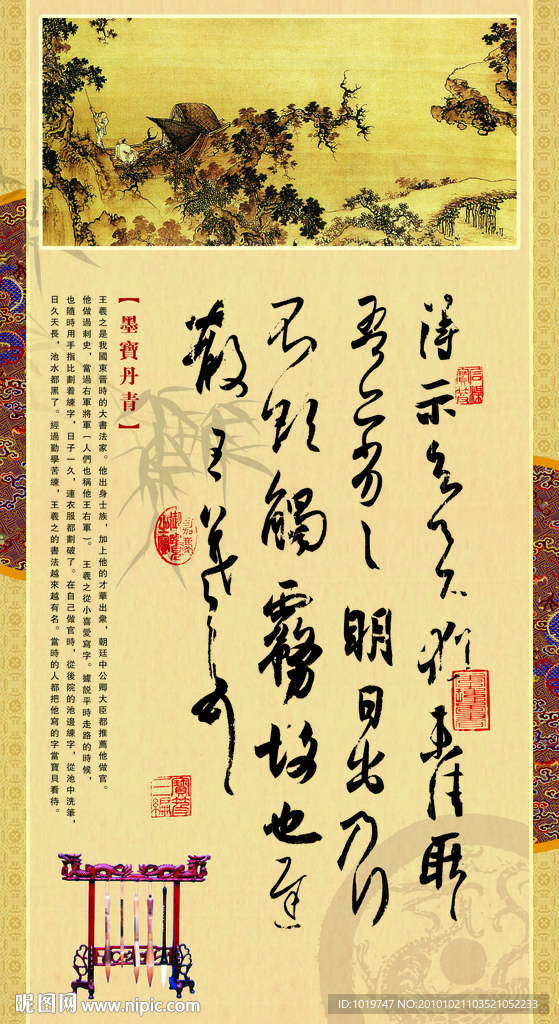 得示知足下猶未佳耿耿
吾亦劣劣明日出乃行
不欲觸霧故也遲
散王羲之頓首
【墨寶丹青】
王羲之是我國東晉時的大書法家。他出身士族，加上他的才華出衆，朝廷中公卿大臣都推薦他做官。
他做過刺史，當過右軍將軍（人們也稱他王右軍）。王羲之從小喜愛寫字。據説平時走路的時候，
也隨時用手指比劃着練字，日子一久，連衣服都劃破了。在自己做官時，從後院的池邊練字，從池中洗筆，
日久天長，池水都黑了。經過勤學苦練，王羲之的書法越來越有名。當時的人都把他寫的字當寶貝看待。
昵图网 www.nipic.com
ID:1019747 NO:20101021103521052233